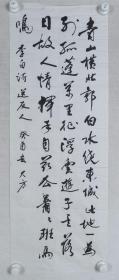 青山横北郭白水绕东城此地一为
别孤蓬万里征浮云游子意落
日故人情挥手自兹去萧萧班马
鸣 李白诗送友人 癸